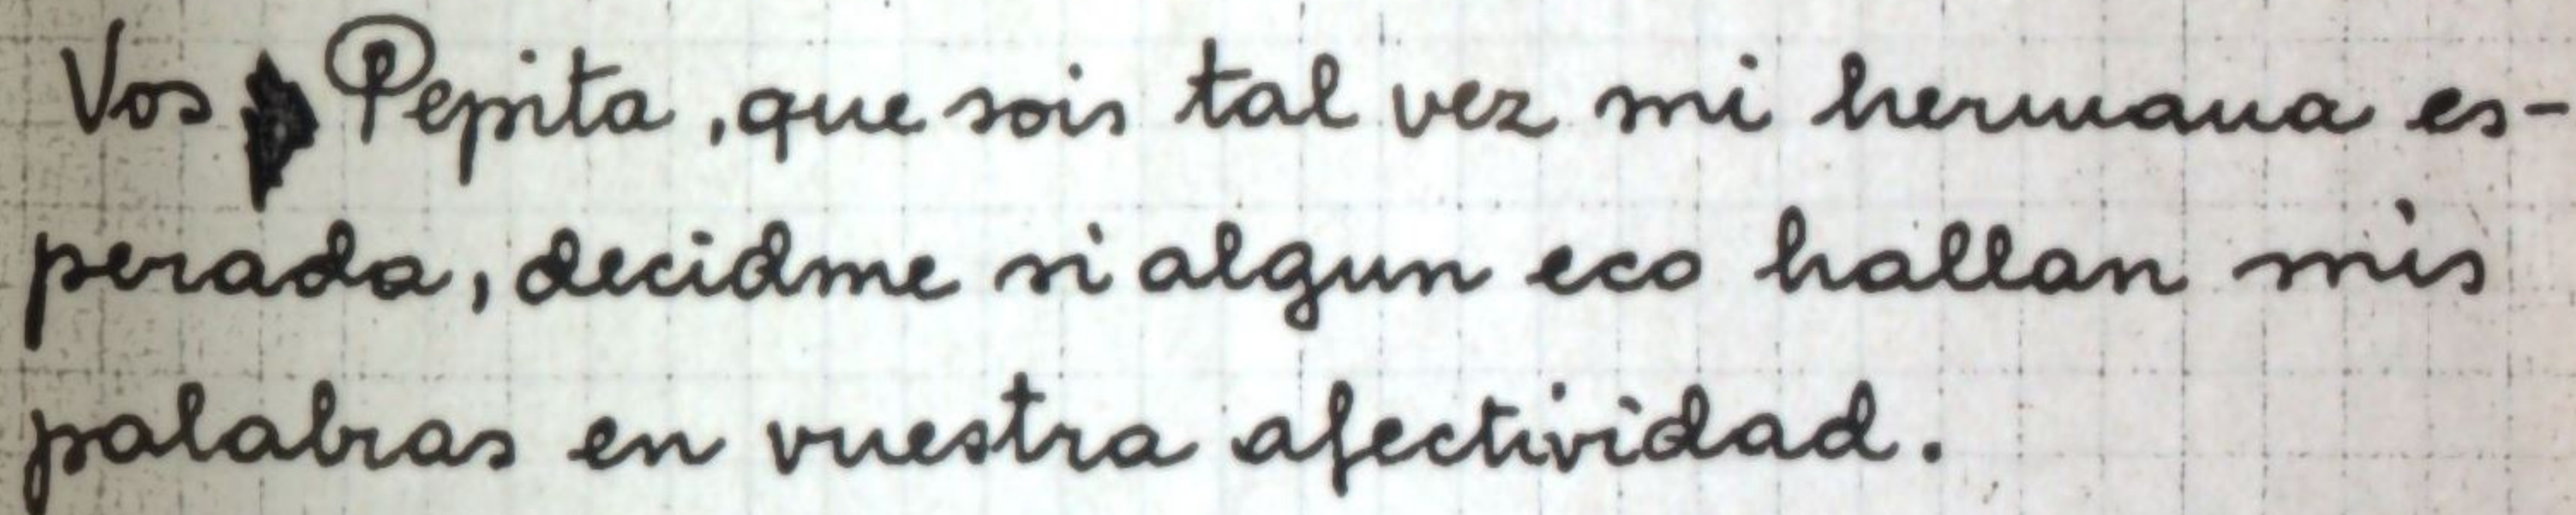 Vos Pepita, que sois tal vez mi hermana es-
perada, decidme si algun eco hallan mis
palabras en vuestra afectividad.